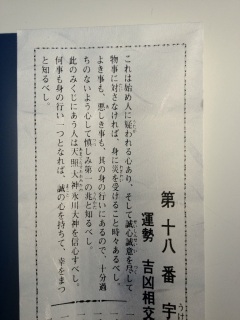 第十八番 宇
うけ
運勢 吉凶相交
これは始め人に疑われる心あり、そして誠心誠意を尽して
物事に対さなければ、身に災を受けること時々あるべし。
よき事も、悪しき事も、其の身の行いにあるので、十分過
ちのないよう心して慎しみ第一の兆と知るべし。
此のみくじにあう人は天照大神氷川大神を信心すべし、
何事も身の行い一つとなれば、誠の心を持ちて、幸をまつ
と知るべし。